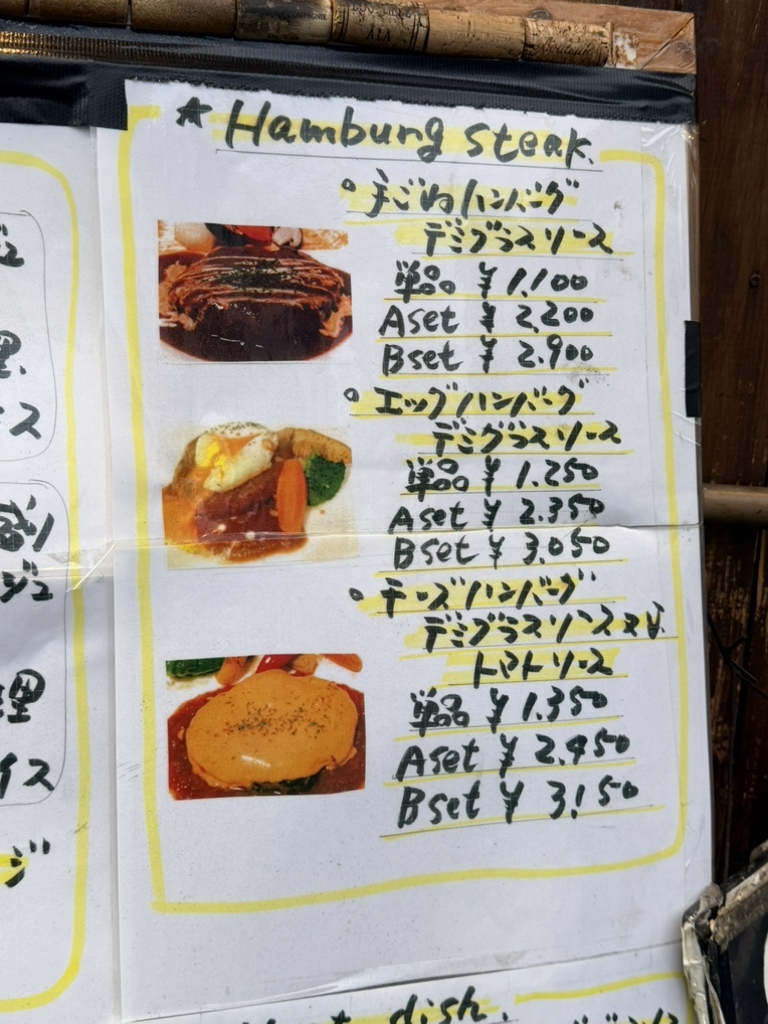 ★ Hamburg steak.
◦手ごねハンバーグ
デミグラスソース
単品 ¥1,100
Aset ¥2,200
Bset ¥2,900
◦エッグハンバーグ
デミグラスソース
単品 ¥1,250
Aset ¥2,350
Bset ¥3,050
◦チーズハンバーグ
デミグラスソース又は
トマトソース
単品 ¥1,350
Aset ¥2,450
Bset ¥3,150
dish.